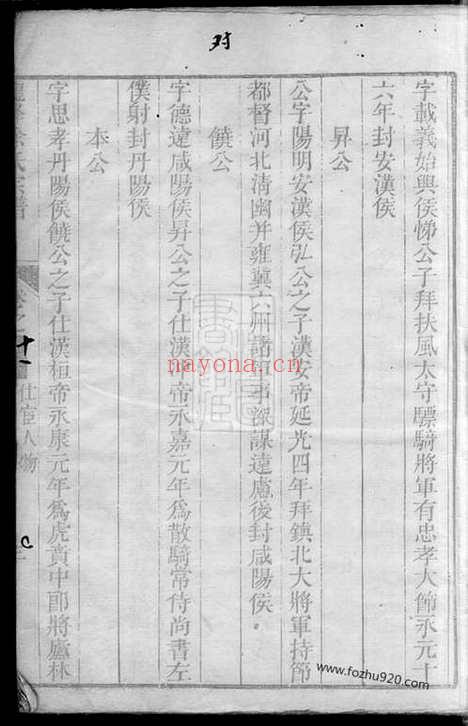 对
字載義始興侯悌公子拜扶風太守驃騎將軍有忠孝大節永元十
六年封安漢侯
昇公
公字陽明安漢侯弘公之子漢安帝延光四年拜鎮北大將軍持節
都督河北清幽并雍冀六州諸事深謀遠慮後封咸陽侯
饒公
字德遠咸陽侯昇公之子仕漢帝永嘉元年為散騎常侍尚書左
僕射封丹陽侯
本公
字思孝丹陽侯饒公之子仕漢桓帝永康元年為虎賁中郎將廬林
氏宗譜
卷之十一
仕宦人物
nayona.cn
www.fozhu920.com